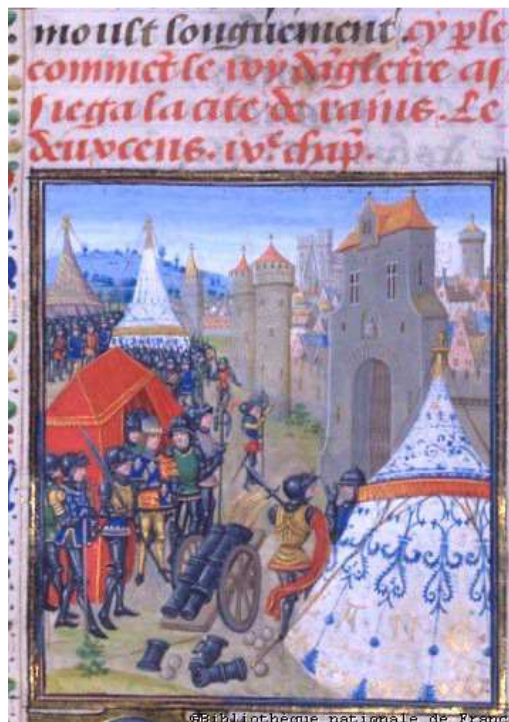 moult longuement. Cy ple
commēt le roy dāgletr̄e as
siega la cite de rains. Le
deuxcens. ixe. chap̄.
©Bibliothèque nationale de Franc